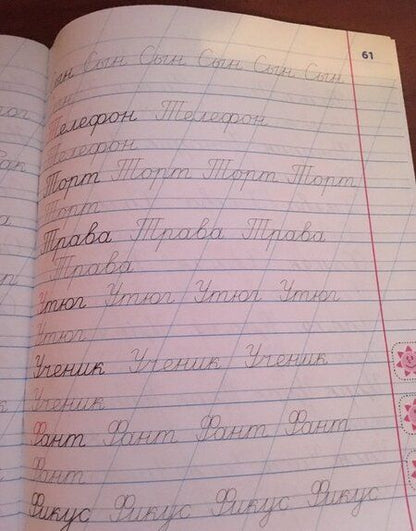 61
Сын Сын Сын Сын Сын Сын
Сын
Телефон Телефон
Телефон
Торт Торт Торт Торт
Торт
Трава Трава Трава
Трава
Утюг Утюг Утюг Утюг
Утюг
Ученик Ученик Ученик
Ученик
Фант Фант Фант Фант
Фант
Фикус Фикус Фикус Фикус